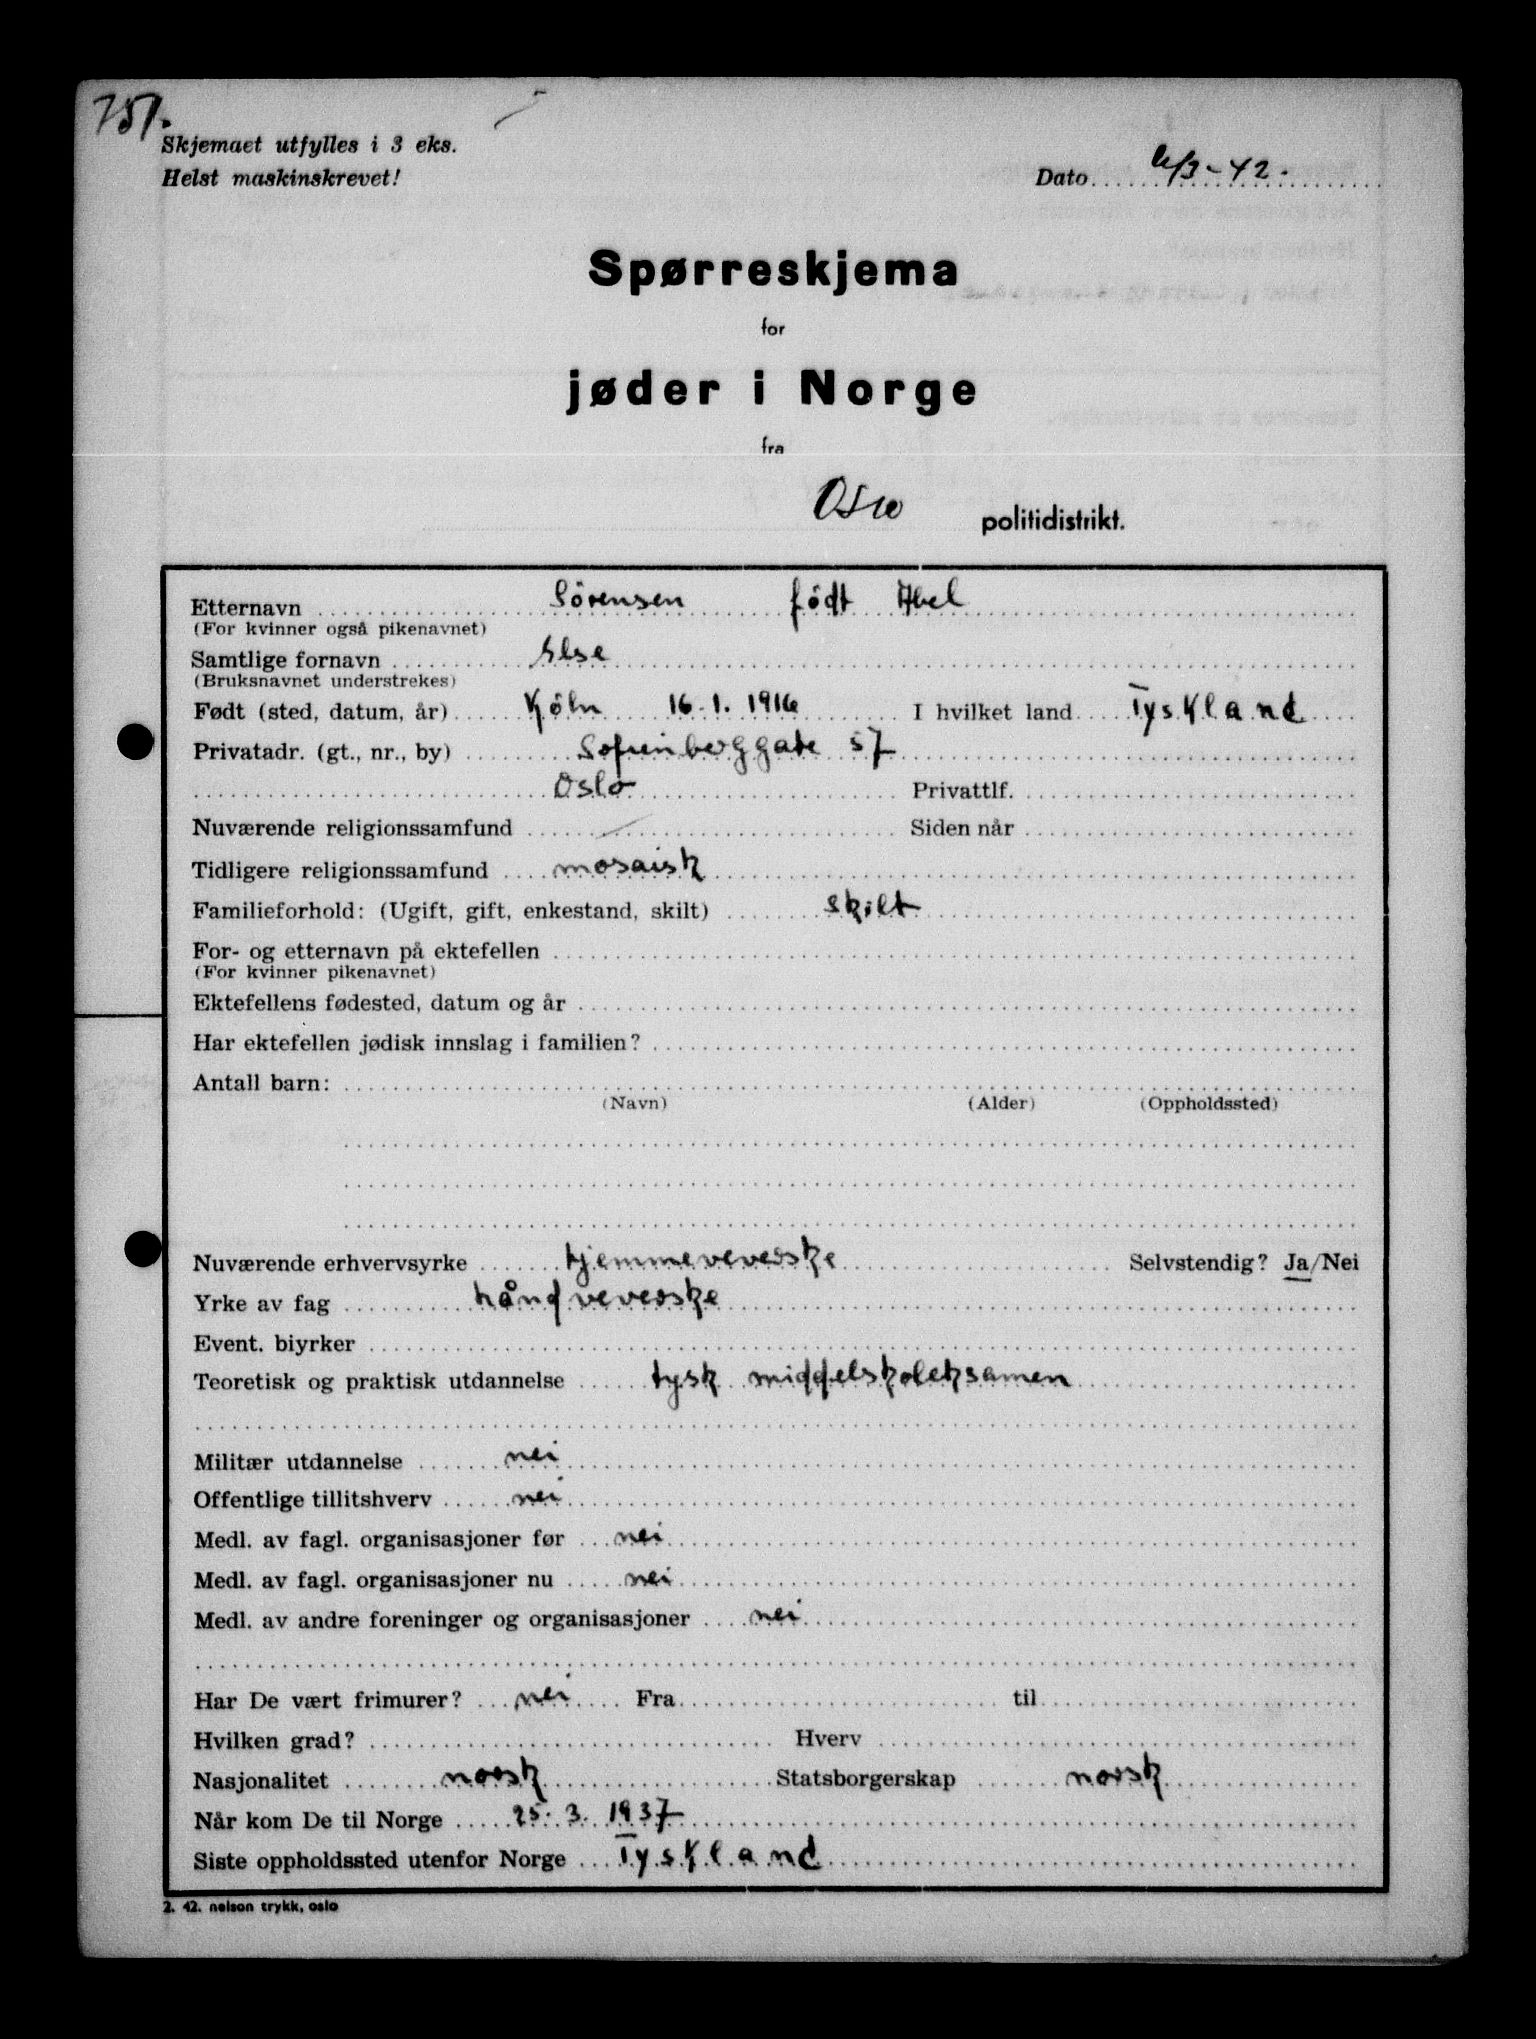 751.
Skjemaet utfylles i 3 eks.
Helst maskinskrevet!
Dato 6/3-42.
Spørreskjema
for
jøder i Norge
fra
Oslo politidistrikt.
Etternavn Sörensen født Abel
(For kvinner også pikenavnet)
Samtlige fornavn Else
(Bruksnavnet understrekes)
Født (sted, datum, år) Köln 16.1.1916 I hvilket land Tyskland
Privatadr. (gt., nr., by) Sofienberggate 57
Oslo Privattlf.
Nuværende religionssamfund Siden når
Tidligere religionssamfund mosaisk
Familieforhold: (Ugift, gift, enkestand, skilt) skilt
For- og etternavn på ektefellen
(For kvinner pikenavnet)
Ektefellens fødested, datum og år
Har ektefellen jødisk innslag i familien?
Antall barn:
(Navn) (Alder) (Oppholdssted)
Nuværende erhvervsyrke hjemmeveverske Selvstendig? Ja/Nei
Yrke av fag håndveverske
Event. biyrker
Teoretisk og praktisk utdannelse tysk middelskoleksamen
Militær utdannelse nei
Offentlige tillitshverv nei
Medl. av fagl. organisasjoner før nei
Medl. av fagl. organisasjoner nu nei
Medl. av andre foreninger og organisasjoner nei
Har De vært frimurer? nei Fra til
Hvilken grad? Hverv
Nasjonalitet norsk Statsborgerskap norsk
Når kom De til Norge 25.3.1937
Siste oppholdssted utenfor Norge Tyskland
2. 42. nelson trykk, oslo